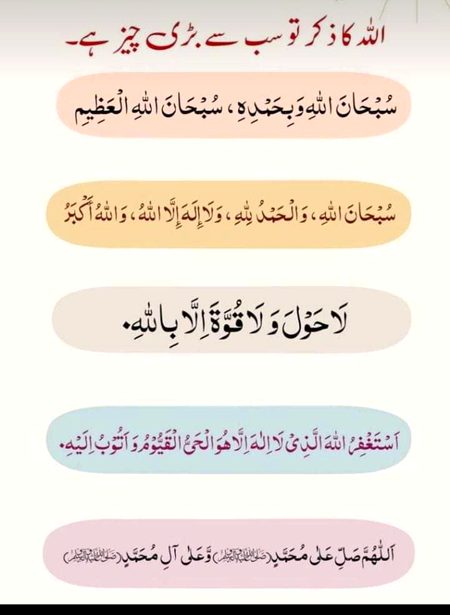 اللہ کا ذکر تو سب سے بڑی چیز ہے۔
سُبْحَانَ اللهِ وَبِحَمْدِهِ ، سُبْحَانَ اللهِ الْعَظِيمِ
سُبْحَانَ اللهِ ، وَالْحَمْدُ لِلّٰهِ ، وَلَا إِلَهَ إِلَّا اللهُ ، وَاللهُ أَكْبَرُ
لَا حَوْلَ وَ لَا قُوَّةَ اِلَّا بِاللهِ۰
اَسْتَغْفِرُ اللهَ الَّذِيْ لَا اِلٰهَ اِلَّا هُوَ الْحَيُّ الْقَيُّوْمُ وَ اَتُوْبُ اِلَيْهِ۰
اَللّٰهُمَّ صَلِّ عَلٰى مُحَمَّدٍ(ﷺ) وَّعَلٰى آلِ مُحَمَّدٍ(ﷺ)